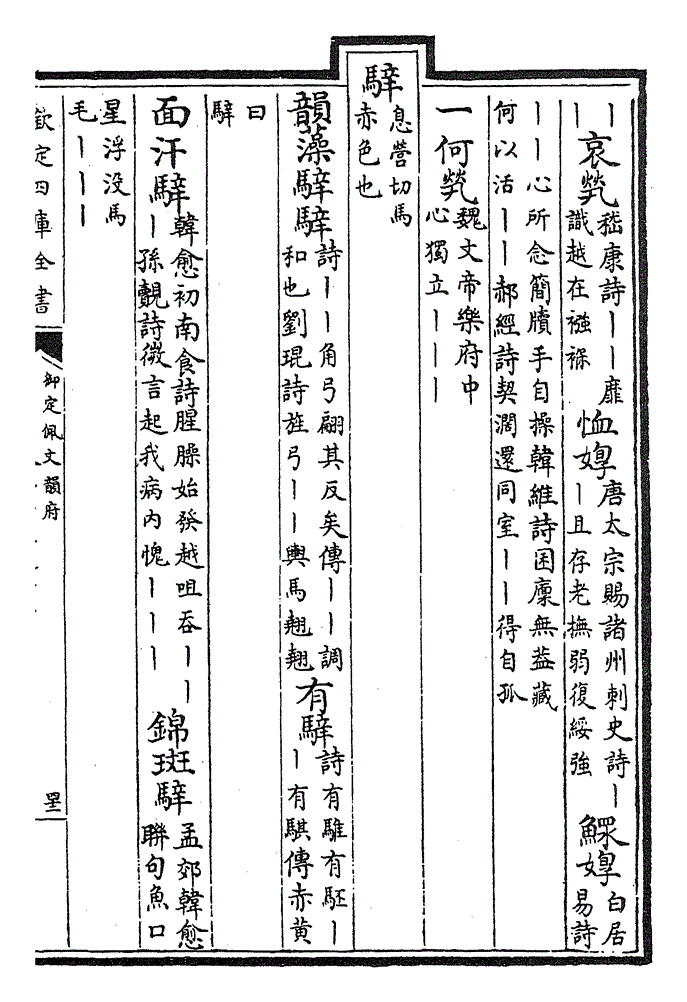 ｜
｜
哀煢
嵇康詩｜｜靡
識越在襁褓
恤惸
唐太宗賜諸州刺史詩｜
｜且存老撫弱復綏強
鰥惸
白居
易詩
｜｜心所念簡牘手自操韓維詩困廩無葢藏
何以活｜｜郝經詩契濶還同室｜｜得自孤
一何煢
魏文帝樂府中
心獨立｜｜｜
騂
息營切馬
赤色也
韻藻騂騂
詩｜｜角弓翩其反矣傳｜｜調
和也劉琨詩旌弓｜｜輿馬翹翹
有騂
詩有騅有駓｜
｜有騏傳赤黄
曰
騂
面汗騂
韓愈初南食詩腥臊始發越咀吞｜｜
｜孫覿詩微言起我病内愧｜｜｜
錦斑騂
孟郊韓愈
聯句魚口
星浮没馬
毛｜｜｜
欽定四庫全書
御定佩文韻府